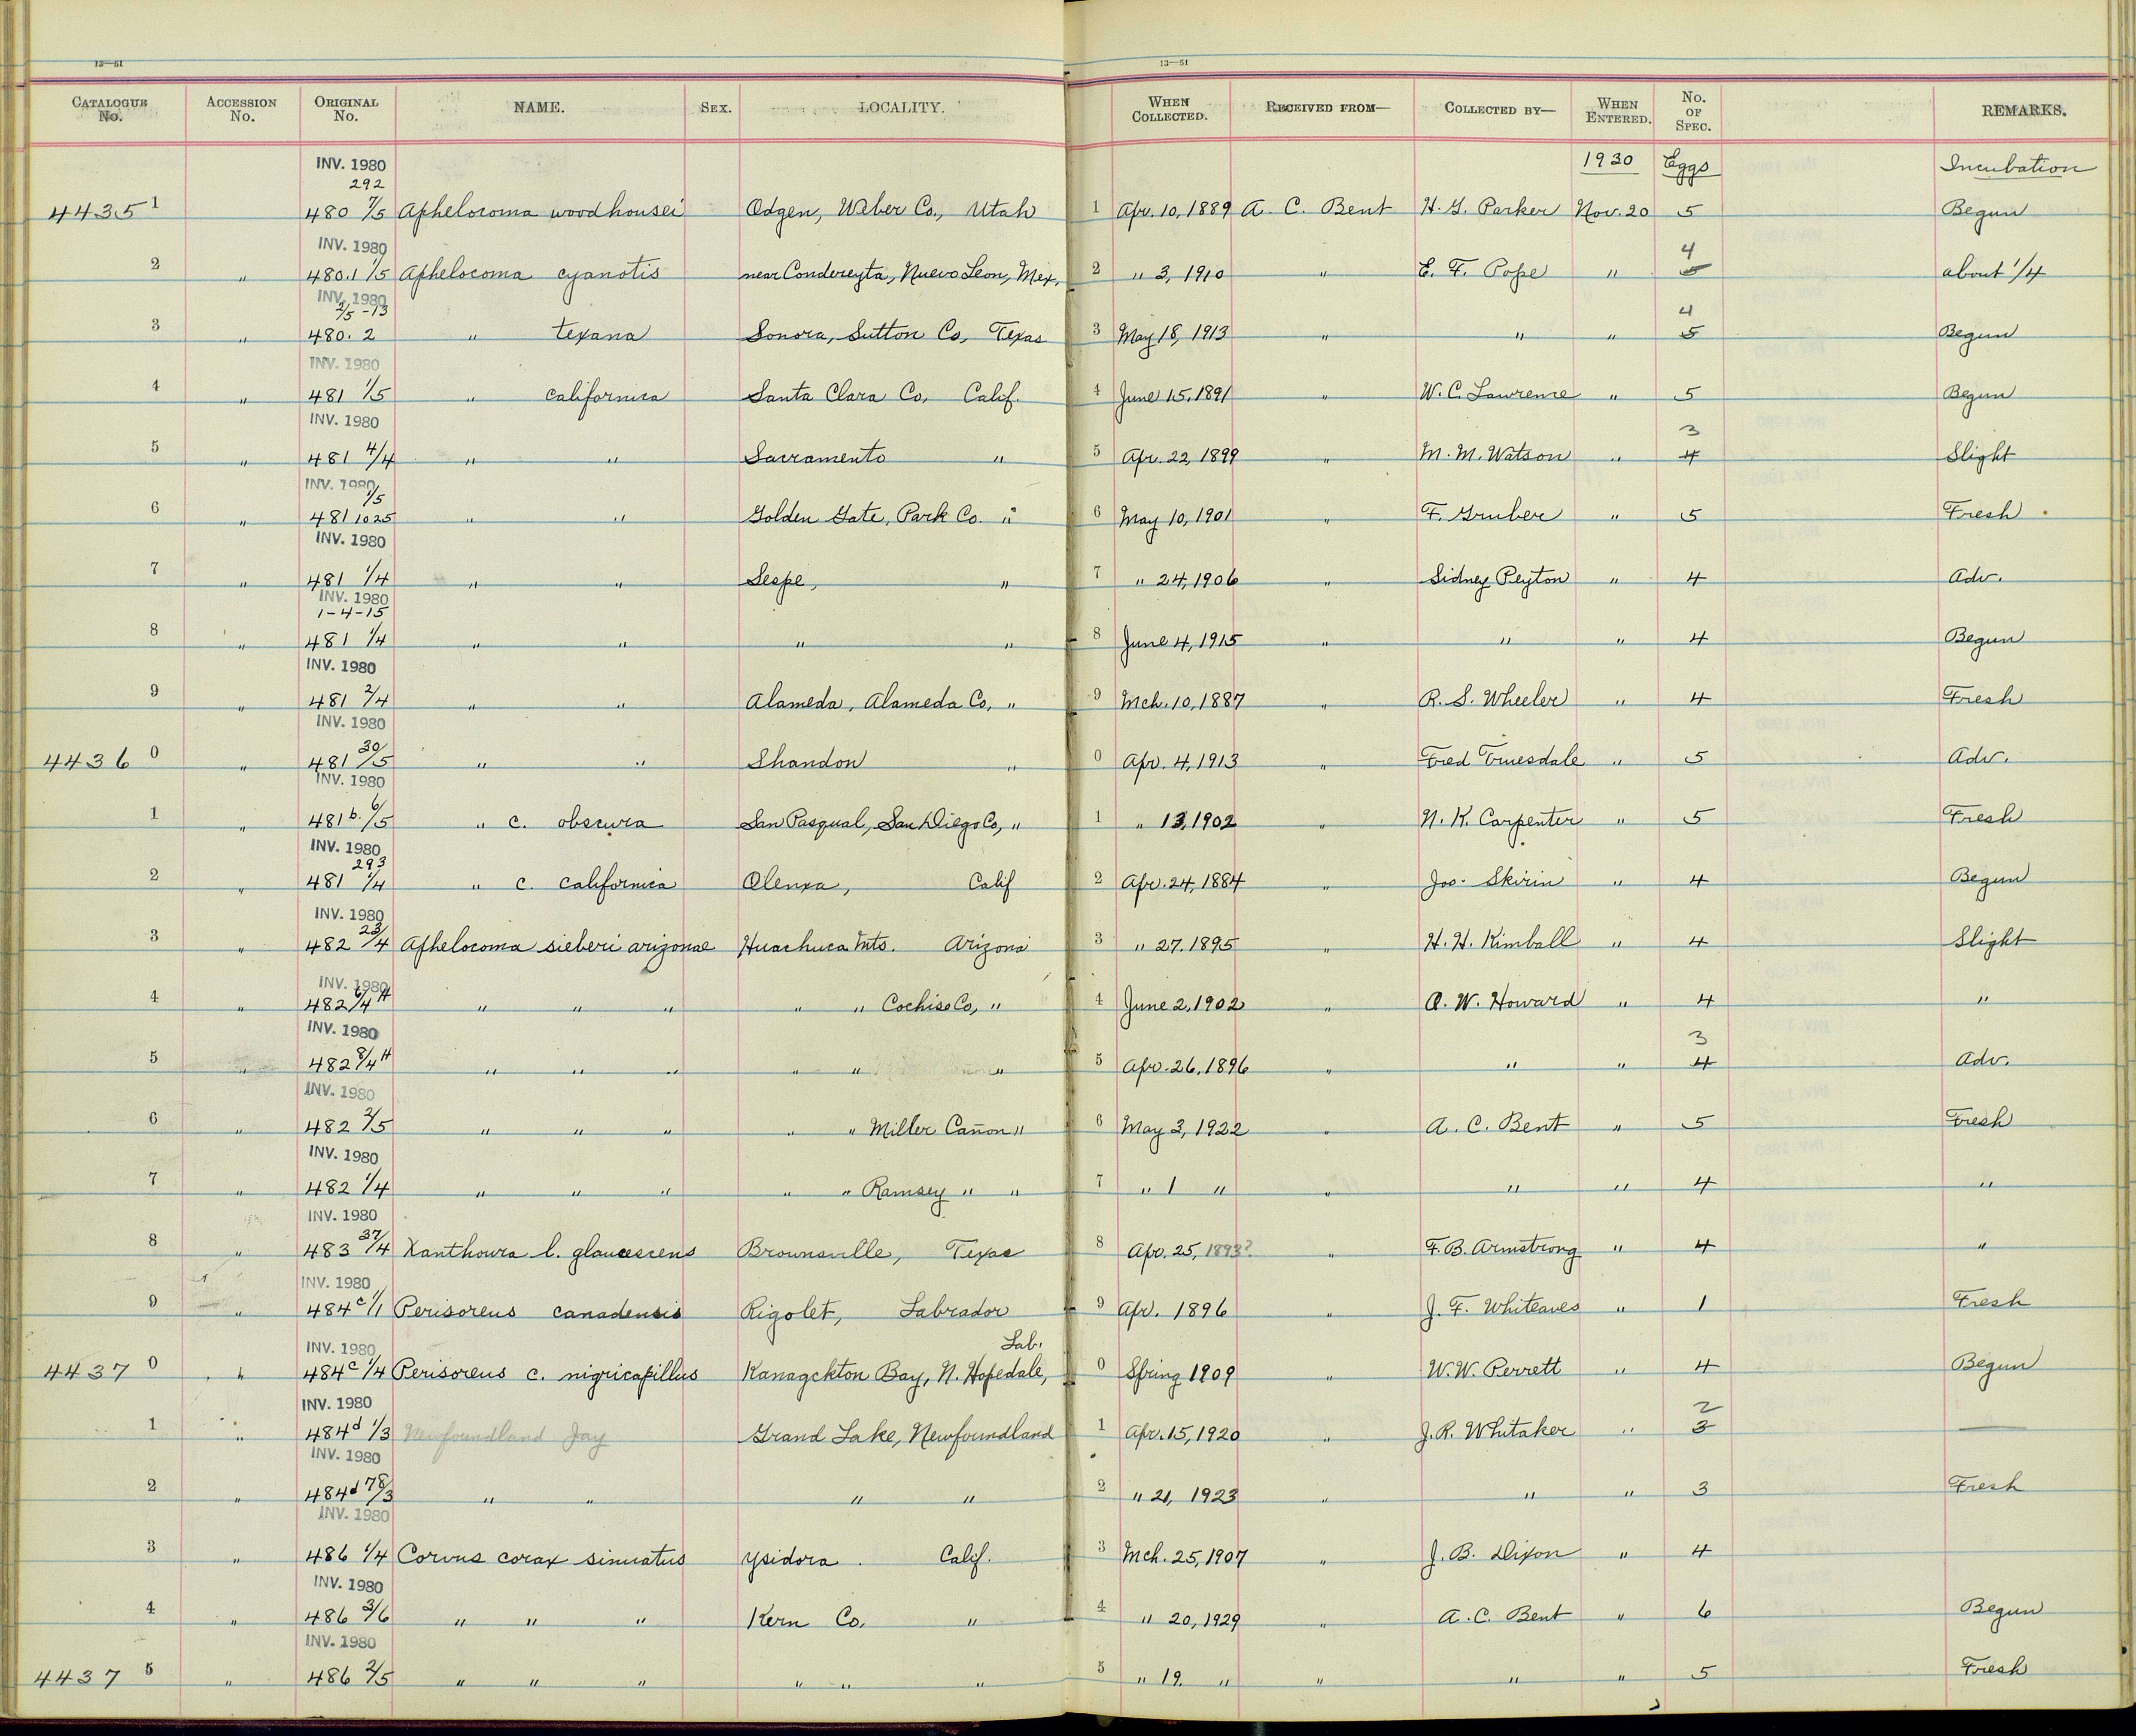 13—51
13—51
CATALOGUE No. ACCESSION No. ORIGINAL No. NAME. SEX. LOCALITY. WHEN COLLECTED. RECEIVED FROM— COLLECTED BY— WHEN ENTERED. No. OF SPEC. REMARKS.
INV. 1980 1930 Eggs Incubation
292
4435 1 480 7/5 Aphelocoma woodhousei Odgen, Weber Co., Utah 1 Apr. 10, 1889 A. C. Bent H. G. Parker Nov. 20 5 Begun
INV. 1980 4
2 " 480.1 1/5 Aphelocoma cyanotis near Condereyta, Nuevo Leon, Mex. 2 " 3, 1910 " E. F. Pope " 5 about 1/4
INV. 1980
2/5 -13 4
3 " 480.2 " texana Sonora, Sutton Co, Texas 3 May 18, 1913 " " " 5 Begun
INV. 1980
4 " 481 1/5 " californica Santa Clara Co, Calif. 4 June 15, 1891 " W. C. Lawrence " 5 Begun
INV. 1980 3
5 " 481 4/4 " " Sacramento " 5 Apr. 22, 1899 " M. M. Watson " 4 Slight
INV. 1980
1/5
6 " 481 1025 " " Golden Gate, Park Co. " 6 May 10, 1901 " F. Gruber " 5 Fresh
INV. 1980
7 " 481 1/4 " " Sespe, " 7 " 24, 1906 " Sidney Peyton " 4 Adv.
INV. 1980
1-4-15
8 " 481 1/4 " " " " 8 June 4, 1915 " " " 4 Begun
INV. 1980
9 " 481 2/4 " " Alameda, Alameda Co, " 9 Mch. 10, 1887 " R. S. Wheeler " 4 Fresh
INV. 1980
4436 0 " 481 30/5 " " Shandon " 0 Apr. 4, 1913 " Fred Truesdale " 5 Adv.
INV. 1980
1 " 481 b. 6/5 " c. obscura San Pasqual, San Diego Co, " 1 " 13, 1902 " N. K. Carpenter " 5 Fresh
INV. 1980
293
2 " 481 1/4 " c. californica Olenxa, Calif 2 Apr. 24, 1884 " Jos. Skirin " 4 Begun
INV. 1980
3 " 482 23/4 Aphelocoma sieberi arizonae Huachuca Mts. Arizona 3 " 27. 1895 " H. H. Kimball " 4 Slight
INV. 1980
4 " 482 6/4 H " " " " " Cochise Co, " 4 June 2, 1902 " O. W. Howard " 4 "
INV. 1980 3
5 " 482 8/4 H " " " " " " 5 Apr. 26, 1896 " " " 4 Adv.
INV. 1980
6 " 482 2/5 " " " " " Miller Cañon " 6 May 3, 1922 " A. C. Bent " 5 Fresh
INV. 1980
7 " 482 1/4 " " " " " Ramsey " " 7 " 1 " " " " 4 "
INV. 1980
8 " 483 37/4 Xanthoura l. glaucescens Brownsville, Texas 8 Apr. 25, 1893? " F. B. Armstrong " 4 "
INV. 1980
9 " 484 c 1/1 Perisoreus canadensis Rigolet, Labrador 9 Apr. 1896 " J. F. Whiteaves " 1 Fresh
INV. 1980 Lab.
4437 0 " 484 c 1/4 Perisoreus c. nigricapillus Kanagckton Bay, N. Hopedale, 0 Spring 1909 " W. W. Perrett " 4 Begun
INV. 1980 2
1 " 484 d 1/3 Newfoundland Jay Grand Lake, Newfoundland 1 Apr. 15, 1920 " J. R. Whitaker " 3 —
INV. 1980
2 " 484 d 78/3 " " " " 2 " 21, 1923 " " " 3 Fresh
INV. 1980
3 " 486 1/4 Corvus corax sinuatus Ysidora . Calif. 3 Mch. 25, 1907 " J. B. Dixon " 4
INV. 1980
4 " 486 3/6 " " " Kern Co. " 4 " 20, 1929 " A. C. Bent " 6 Begun
INV. 1980
4437 5 " 486 2/5 " " " " " " 5 " 19. " " " " 5 Fresh